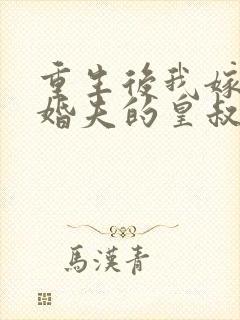 重生後我嫁
婚夫的皇叔
馬漢青